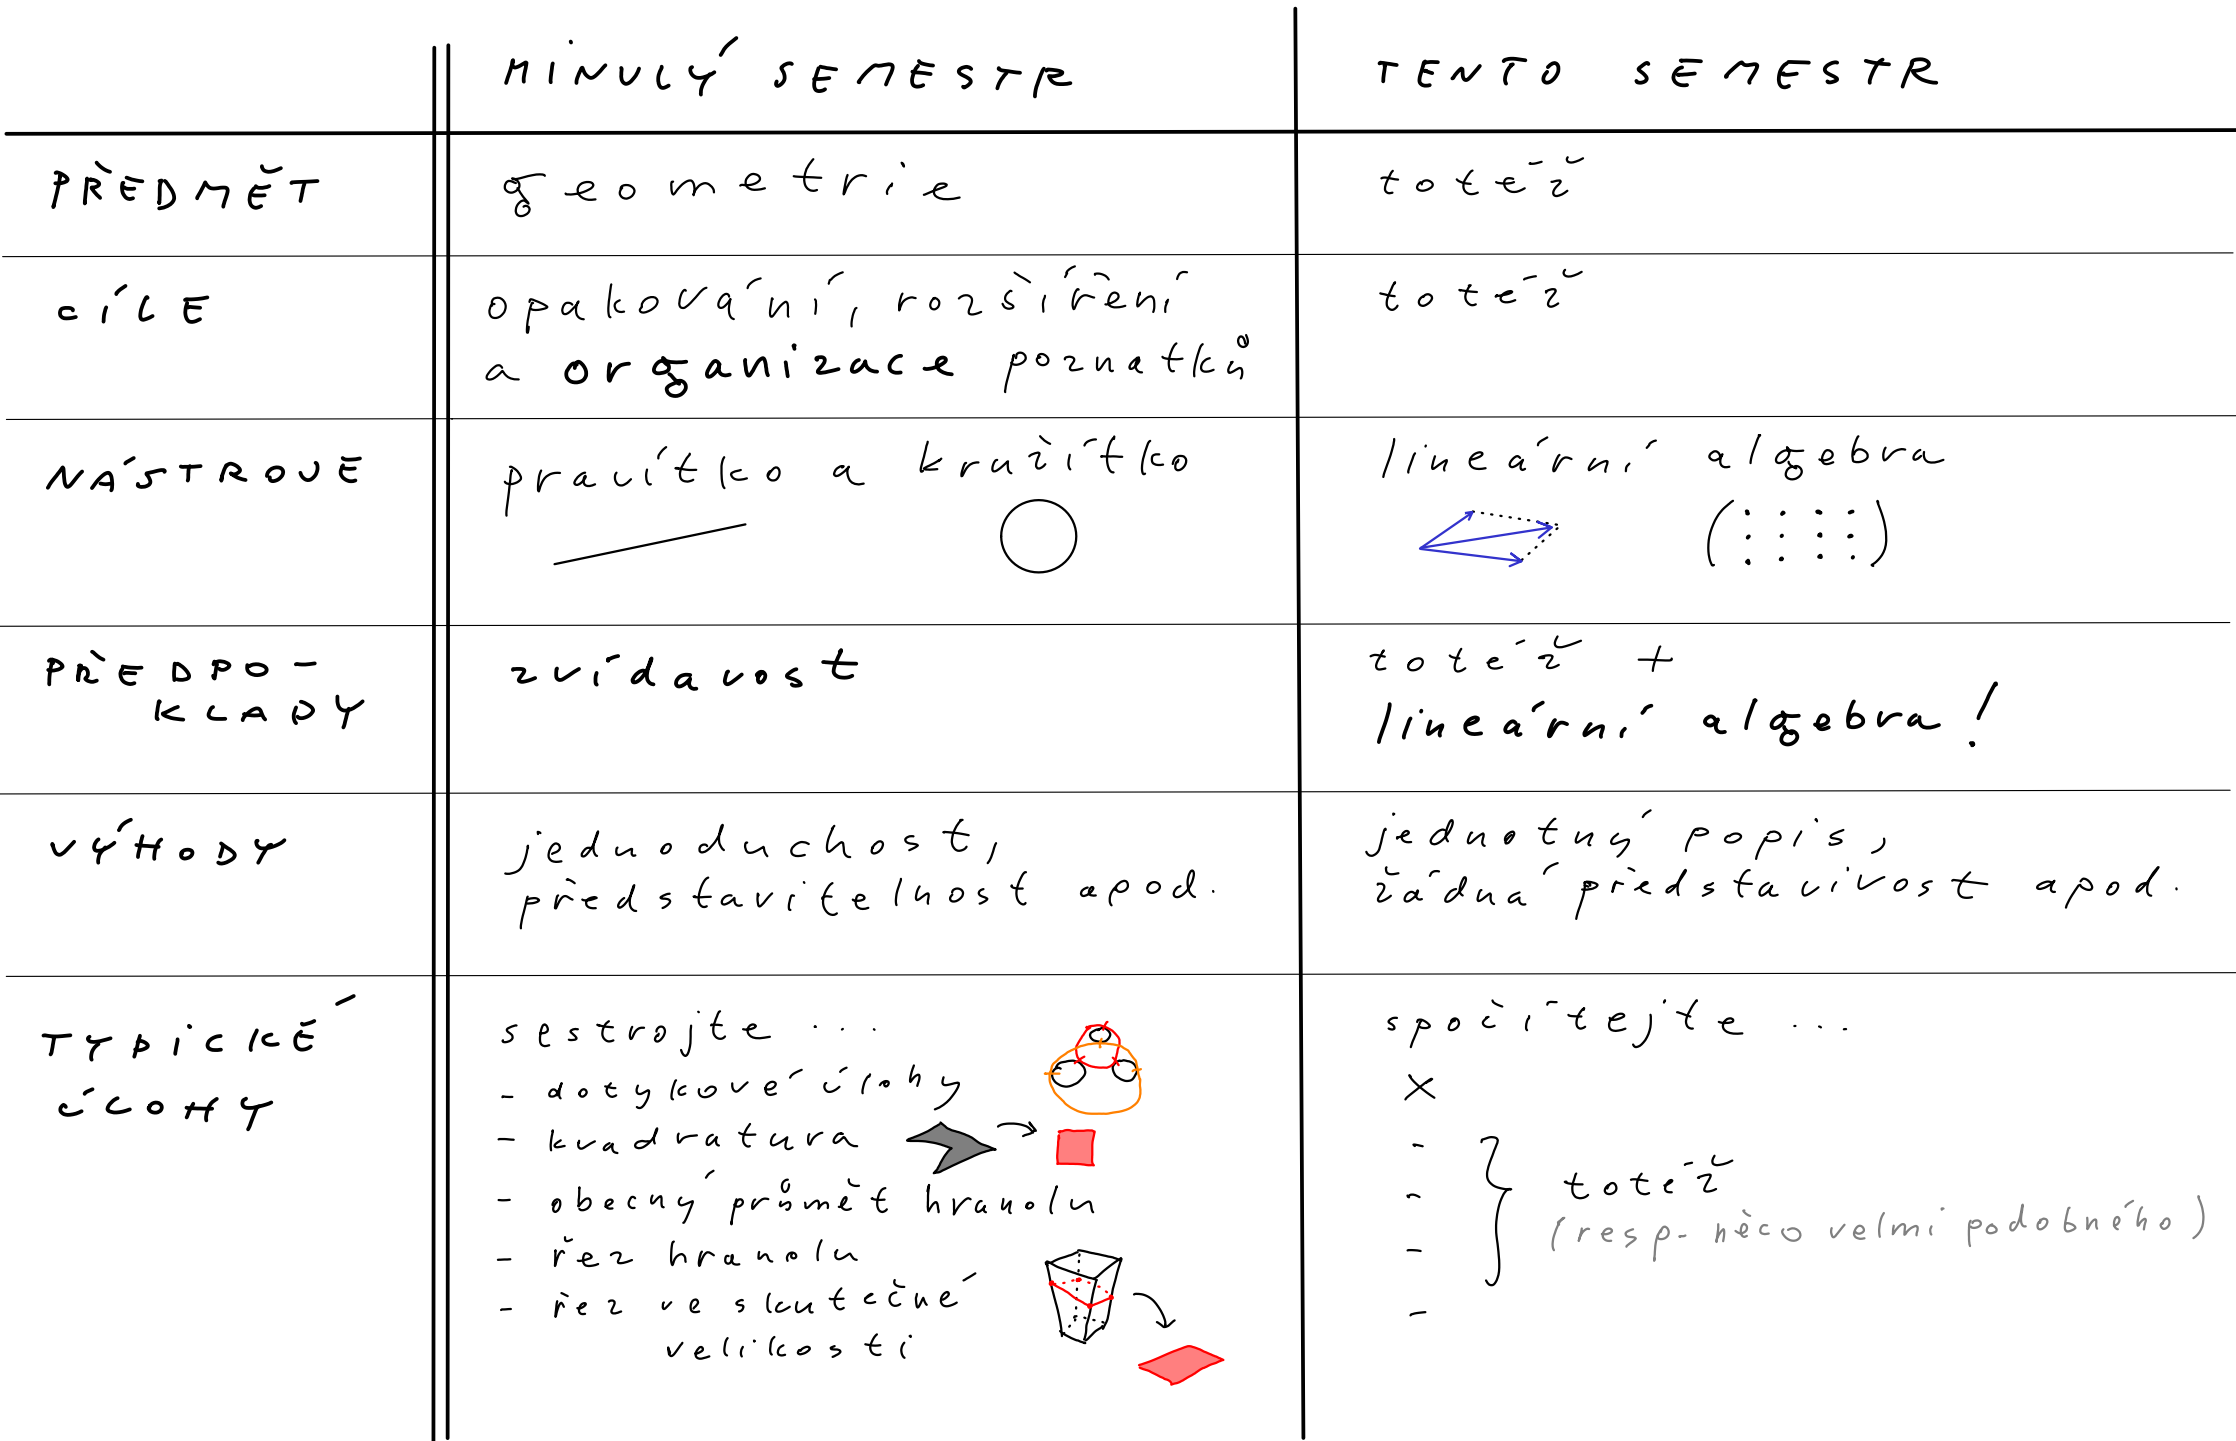 MINULÝ SEMESTR
TENTO SEMESTR
PŘEDMĚT
geometrie
totéž
CÍLE
opakování, rozšíření
a organizace poznatků
totéž
NÁSTROJE
pravítko a kružítko
lineární algebra
PŘEDPO-
KLADY
zvídavost
totéž +
lineární algebra!
VÝHODY
jednoduchost,
představitelnost apod.
jednotný popis,
žádná představivost apod.
TYPICKÉ
ÚLOHY
sestrojte ...
- dotykové úlohy
- kvadratura
- obecný průmět hranolu
- řez hranolu
- řez ve skutečné
velikosti
spočítejte ...
X
-
-
-
-
totéž
(resp. něco velmi podobného)